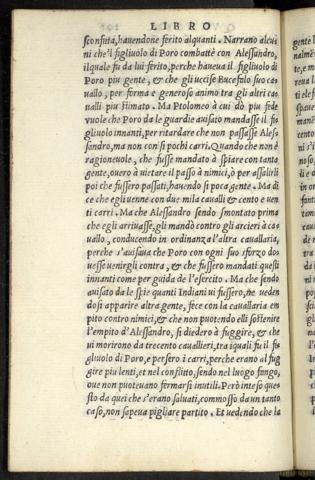 LIBRO
sconfitta, hauendone ferito alquanti. Narrano alcu=
ni che'l figliuolo di Poro combattè con Alessandro,
il quale fu da lui ferito, perche haueua il figliuolo di
Poro piu gente, & che gli uccise Bucefalo suo ca=
uallo, per forma e generoso animo tra gli altri ca=
ualli piu stimato. Ma Ptolomeo à cui dò piu fede
uuole che Poro da le guardie auisato mandasse il fi=
gliuolo innanti, per ritardare che non passasse Ales=
sandro, ma non con si pochi carri. Quando che non è
ragioneuole, che fusse mandato à spiare con tanta
gente, ouero à uietare il passo à nimici, ò per assalirli
poi che fussero passati, hauendo si poca gente. Ma di
ce che egli uenne con due mila caualli & cento e uen
ti carri. Ma che Alessandro sendo smontato prima
che egli arriuasse, gli mandò contro gli arcieri à ca=
uallo, conducendo in ordinanza l'altra cauallaria,
perche s'auisaua che Poro con ogni suo sforzo do=
uesse uenirgli contra, & che fussero mandati questi
innanti come per guida de l'esercito. Ma che sendo
auisato da le spie quanti Indiani ui fussero, ne ueden
dosi apparire altra gente, fece con la cauallaria em
pito contro nimici, & che non potendo elli sostenire
l'empito d'Alessandro, si diedero à fuggire, & che
ui morirono da trecento cauallieri, tra i quali fu il fi
gliuolo di Poro, e persero i carri, perche erano al fug
gire piu lenti, et nel conflitto, sendo nel luogo fango,
oue non poteuano fermarsi inutili. Però inteso que=
sto da quei che s'erano saluati, commosso da un tanto
caso, non sapeua pigliare partito. Et uedendo che la